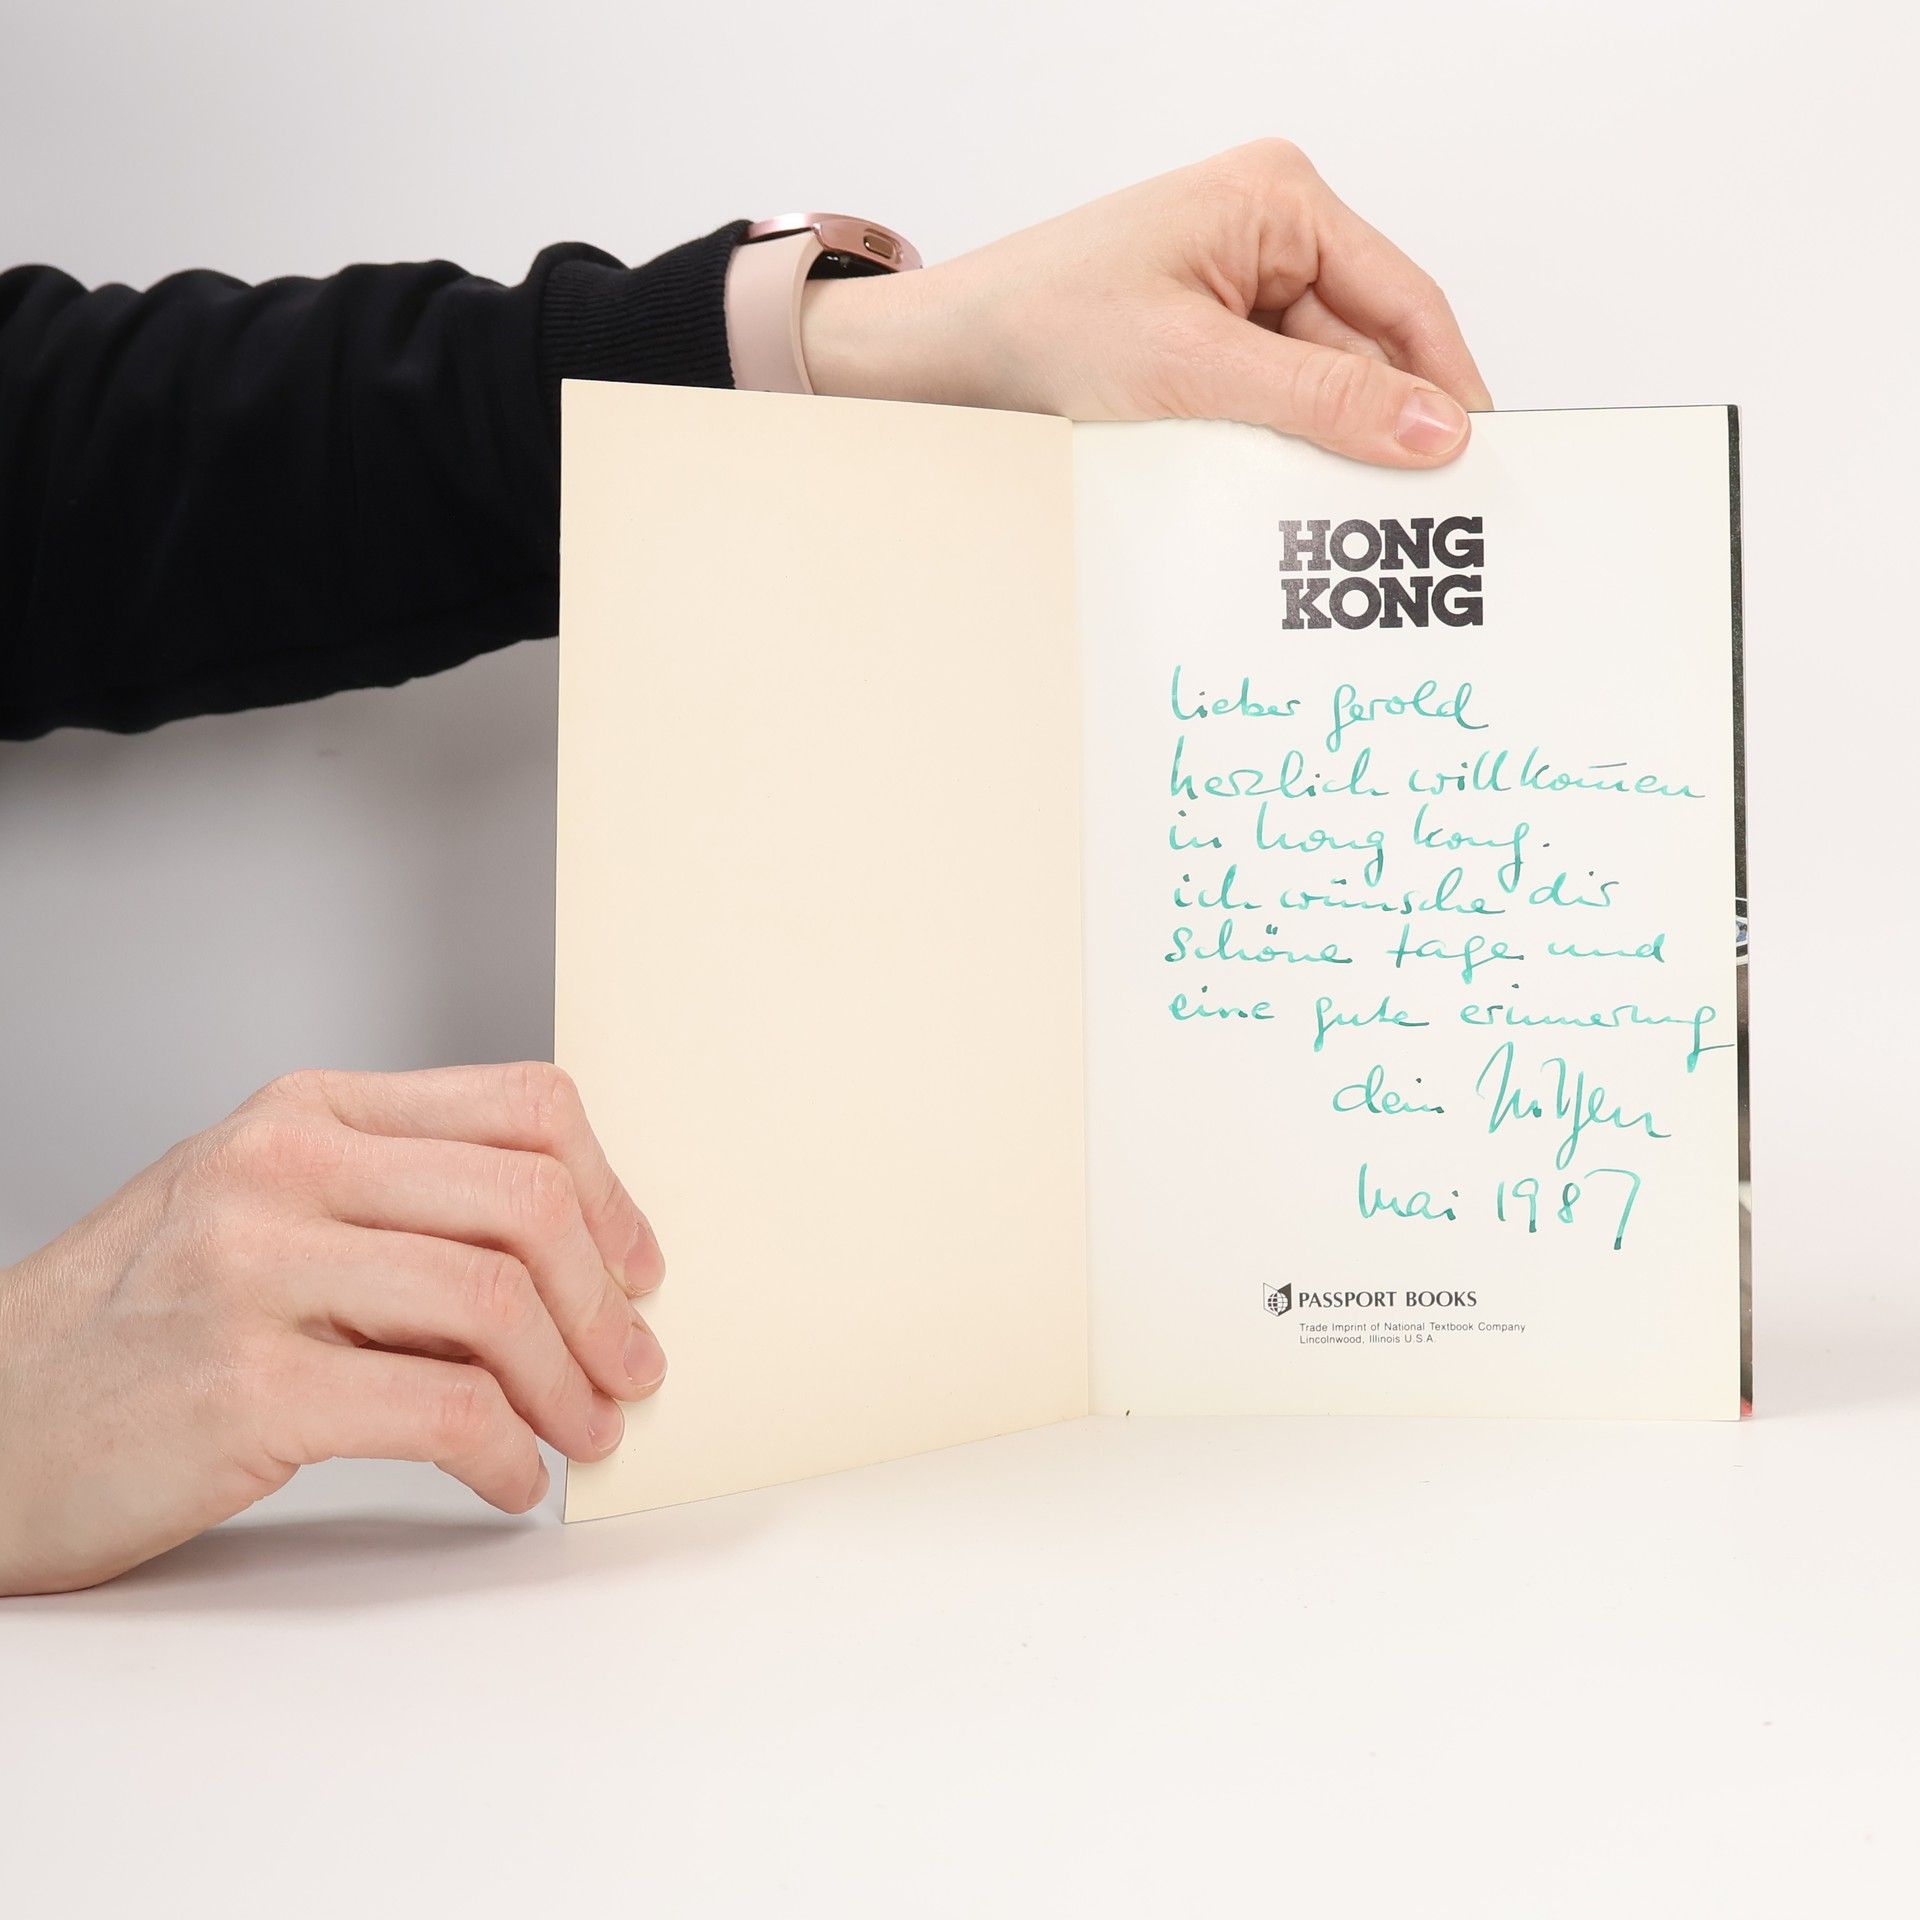 HONG
KONG
lieber gerold
herzlich willkom̄en
in hong kong.
ich wünsche dir
schöne tage und
eine gute erinnerung
dein
Mai 1987
PASSPORT BOOKS
Trade Imprint of National Textbook Company
Lincolnwood, Illinois U.S.A.